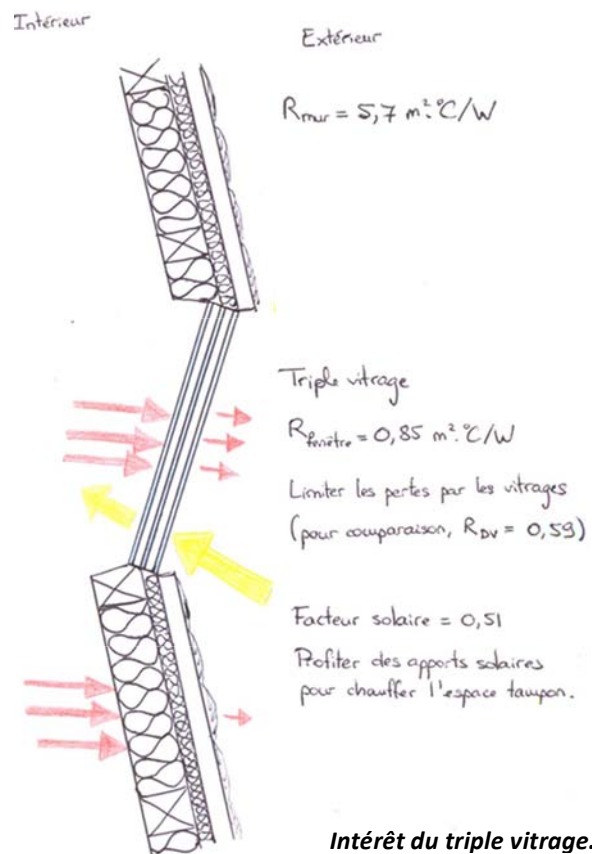 Intérieur
Extérieur
Rmur = 5,7 m².°C/W
Triple vitrage
Rfenêtre = 0,85 m².°C/W
Limiter les pertes par les vitrages
(pour comparaison, RDV = 0,59)
Facteur solaire = 0,51
Profiter des apports solaires
pour chauffer l'espace tampon.
Intérêt du triple vitrage.